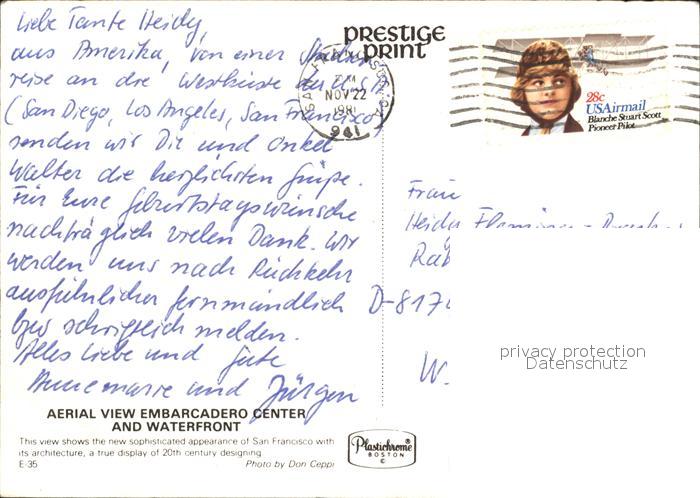 Liebe Tante Heidy,
aus Amerika, von einer Studien
reise an die Westküste der USA
(San Diego, Los Angeles, San Francisco)
senden wir Dir und Onkel
Walter die herzlichsten Grüße.
Für Eure Geburtstagswünsche
nachträglich vielen Dank. Wir
werden uns nach Rückkehr
ausführlicher fernmündlich
bzw schriftlich melden.
Alles Liebe und Gute
Annemarie und Jürgen
AERIAL VIEW EMBARCADERO CENTER
AND WATERFRONT
This view shows the new sophisticated appearance of San Francisco with
its architecture, a true display of 20th century designing
E-35 Photo by Don Ceppi
PRESTIGE
PRINT
PM
NOV 22
1981
941
28c
USAirmail
Blanche Stuart Scott
Pioneer Pilot
Frau
Heidy
D-817
W.
privacy protection
Datenschutz
Plastichrome®
BOSTON
©